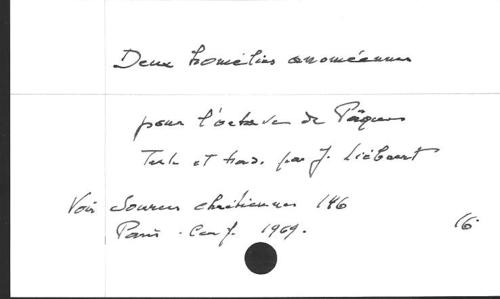 Deux homélies anoméennes
pour l'octave de Pâques
Texte et trad. par J. Liébaert
Voir Sources chrétiennes 146
Paris. Cerf. 1969. 16.